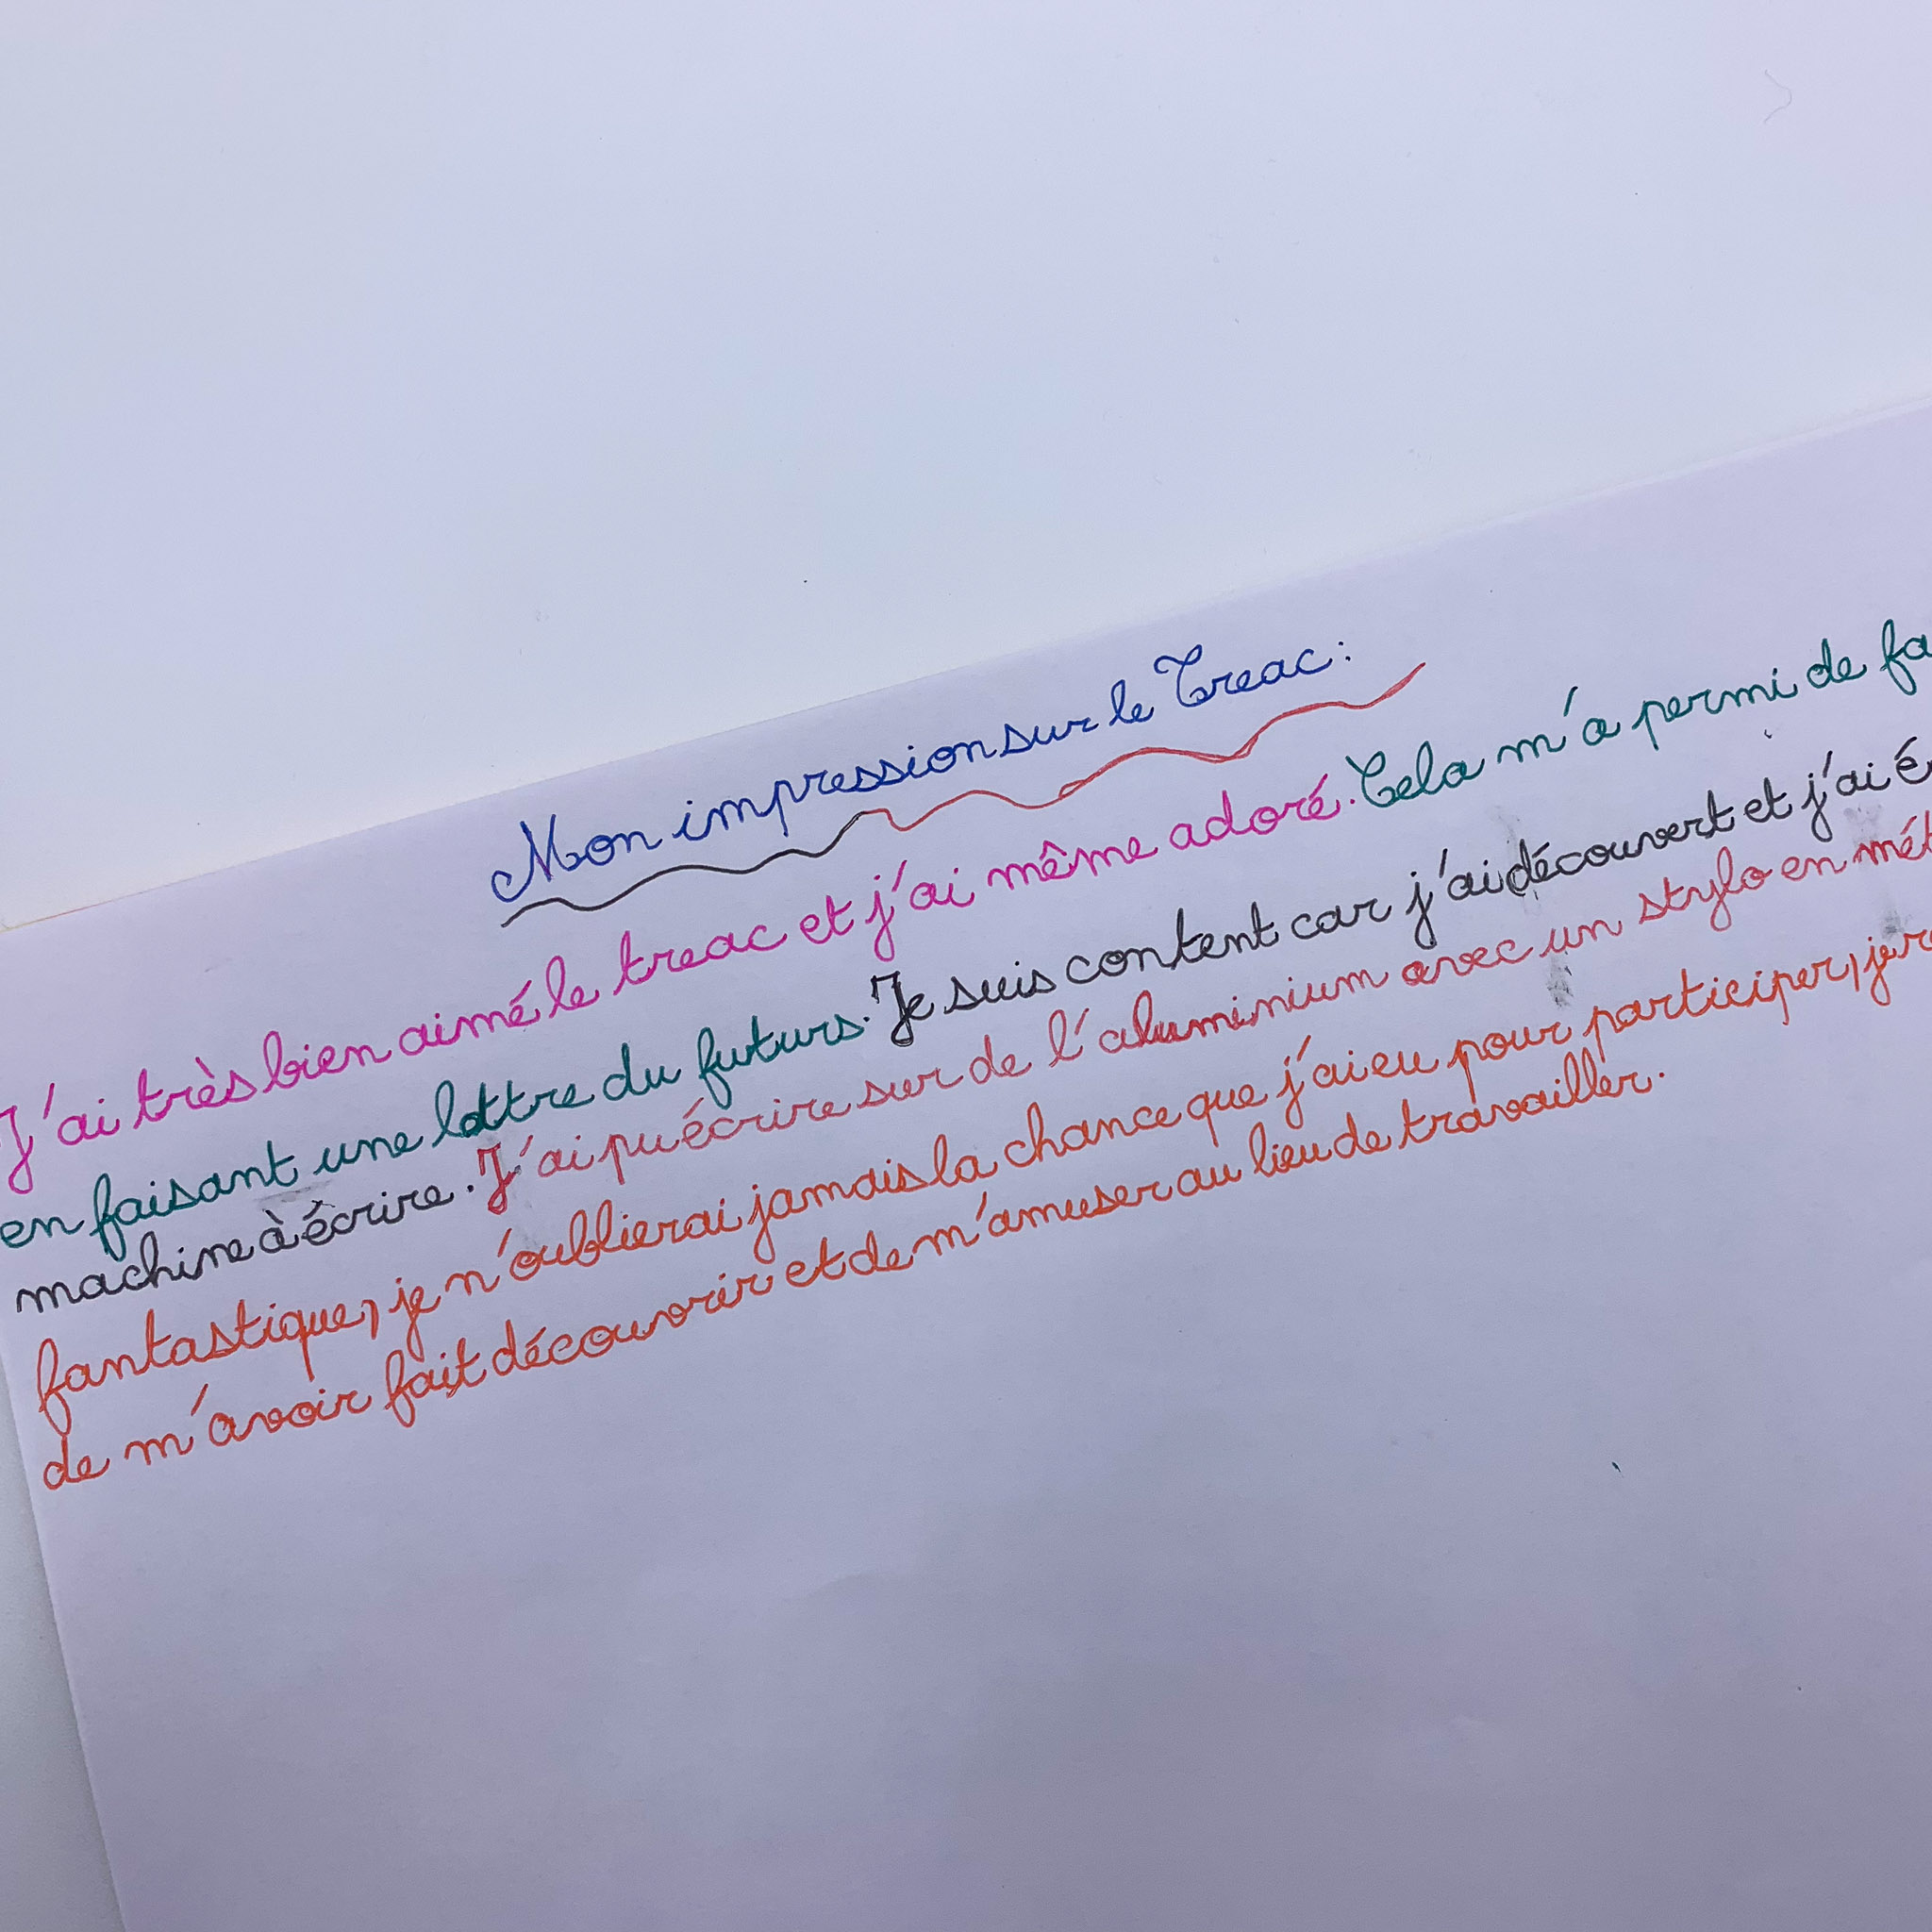 Mon impression sur le Treac :
J'ai très bien aimé le treac et j'ai même adoré. Cela m'a permi de
en faisant une lettre du futurs. Je suis content car j'ai découvert et j'ai
machine à écrire. J'ai pu écrire sur de l'aluminium avec un stylo en
fantastique, je n'oublierai jamais la chance que j'ai eu pour participer,
de m'avoir fait découvrir et de m'amuser au lieu de travailler.